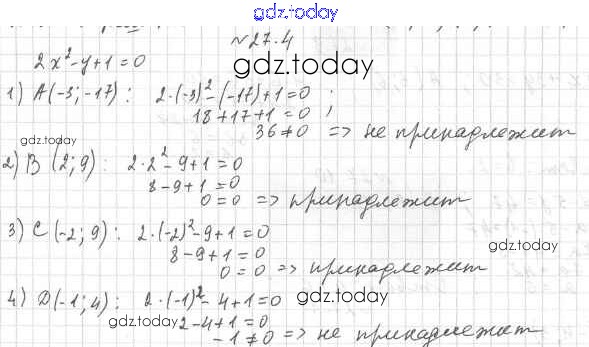 gdz.today
№27.4
2x²-y+1=0
gdz.today
1) A(-3;-17): 2·(-3)²-(-17)+1=0;
18+17+1=0
36≠0 => не принадлежит
gdz.today
2) B(2;9): 2·2²-9+1=0
8-9+1=0
0=0 => принадлежит
3) C(-2;9): 2·(-2)²-9+1=0
8-9+1=0
gdz.today
0=0 => принадлежит
4) D(-1;4): 2·(-1)²-4+1=0
gdz.today
gdz.today
2-4+1=0
-1≠0 => не принадлежит